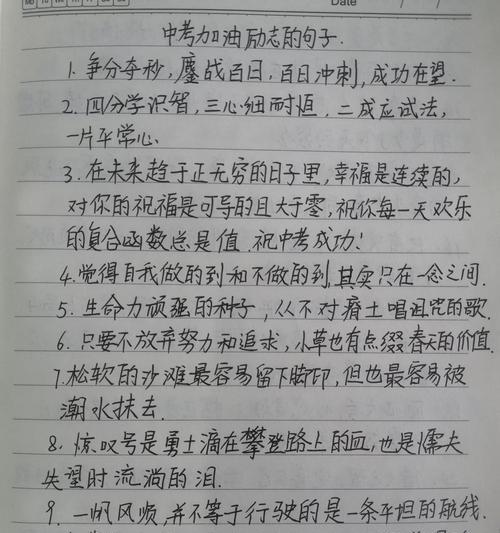 Date
中考加油励志的句子.
1. 争分夺秒，鏖战百日，百日冲刺，成功在望.
2. 四分学识智，三心细而恒，二成应试法，
一片平常心.
3. 在未来趋于正无穷的日子里，幸福是连续的，
对你的祝福是可导的且大于零，祝你每一天欢乐
的复合函数总是值. 祝中考成功！
4. 觉得自我做的到和不做的到，其实只在一念之间.
5. 生命力顽强的种子，从不对瘠土唱诅咒的歌.
6. 只要不放弃努力和追求，小草也有点缀春天的价值.
7. 松软的沙滩最容易留下脚印，但也最容易被
潮水扶去.
8. 惊叹号是勇士滴在攀登路上的血，也是懦夫
失望时流淌的泪.
9. 一帆风顺，并不等于行驶的是一条平坦的航线.